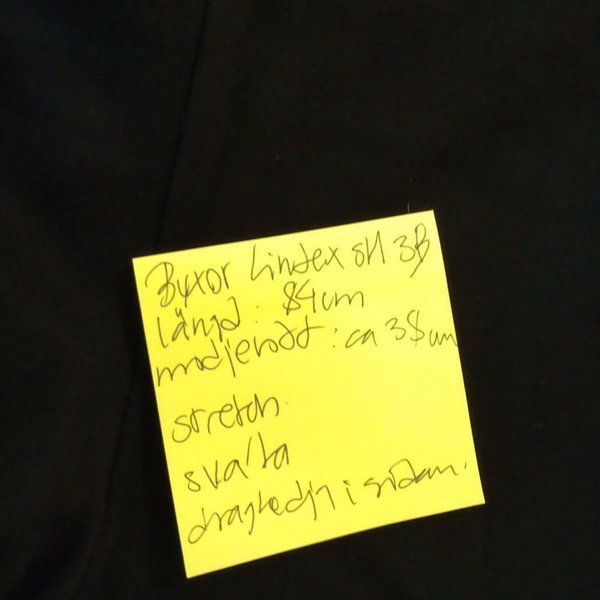 Byxor Lindex stl 38
längd: 84cm
midjebrädd: ca 38cm
stretch.
svarta
dragkedja i sidan.